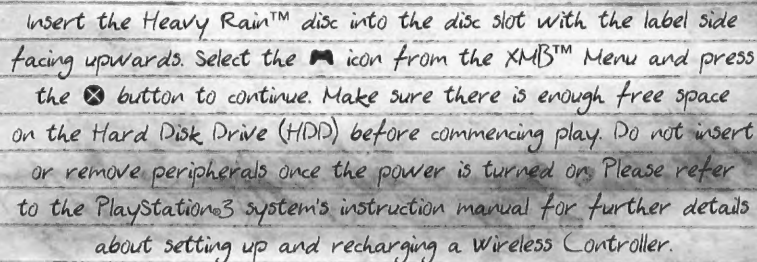 Insert the Heavy Rain™ disc into the disc slot with the label side
facing upwards. Select the icon from the XMB™ Menu and press
the ⊗ button to continue. Make sure there is enough free space
on the Hard Disk Drive (HDD) before commencing play. Do not insert
or remove peripherals once the power is turned on. Please refer
to the PlayStation®3 system's instruction manual for further details
about setting up and recharging a Wireless Controller.